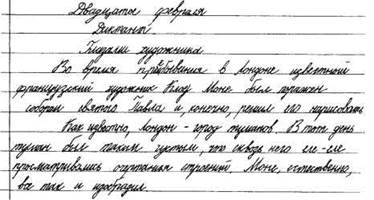 Двадцатое февраля
Диктант
Глазами художника
Во время пребывания в Лондоне известный
французский художник Клод Моне был поражён
собором святого Павла и, конечно, решил его нарисовать
Как известно, Лондон - город туманов. В тот день
туман был таким густым, что сквозь него еле-еле
просматривались очертания строений. Моне, естественно,
все так и изобразил.